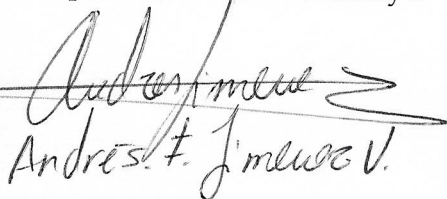 Andres Jimenez
Andrés. F. Jimenez V.